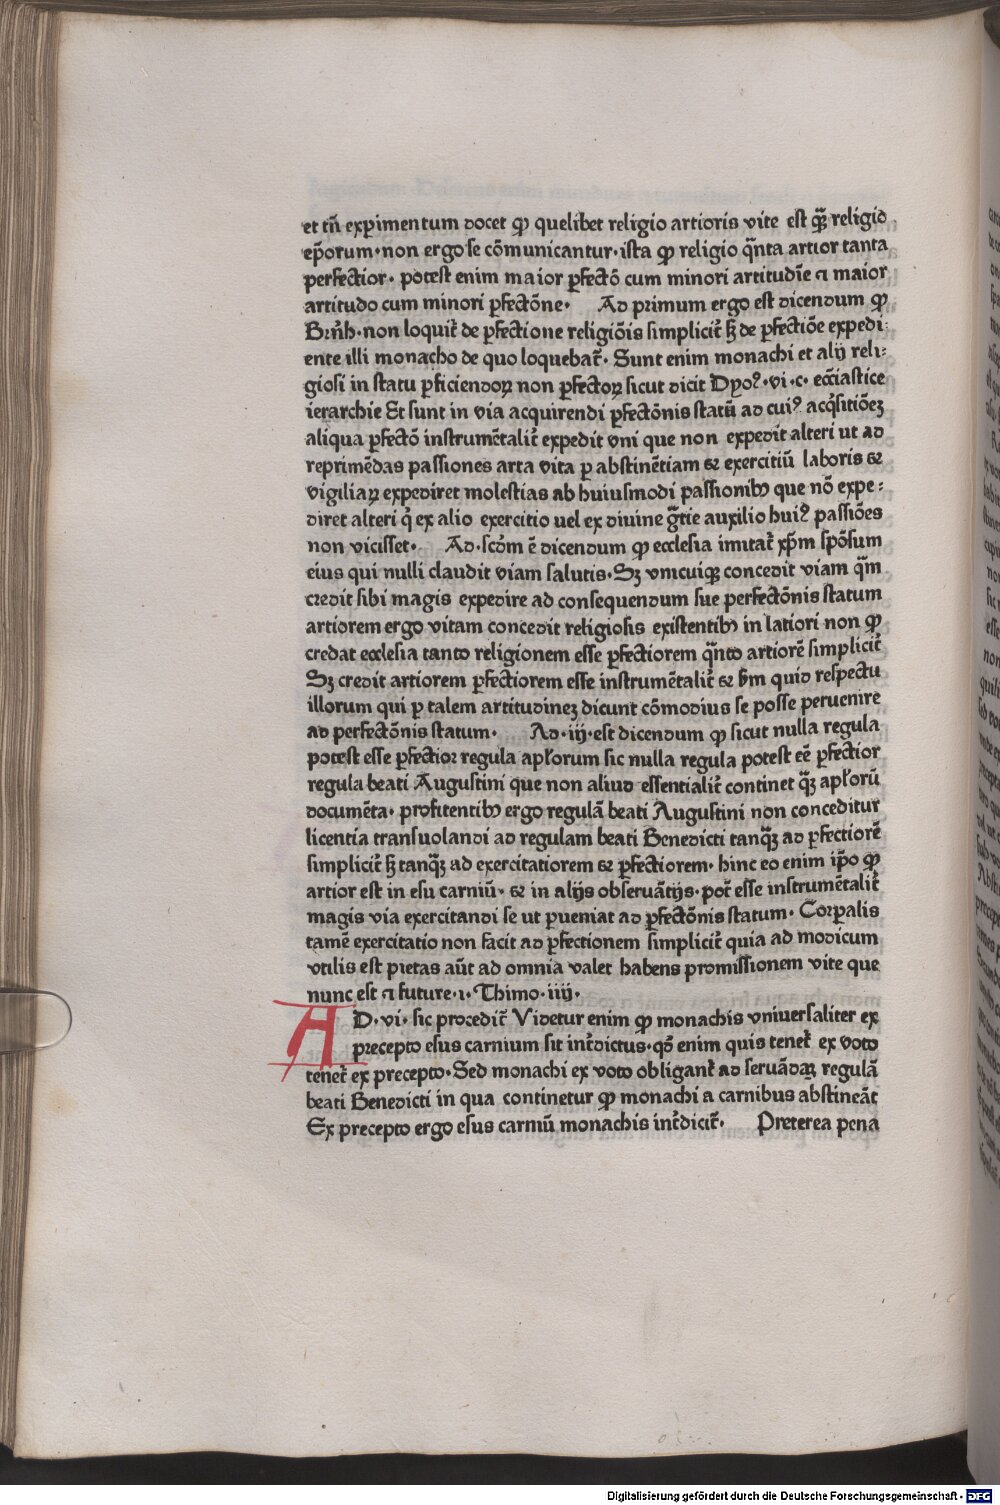 et tn̄ exp̱imentum docet ꝙ quelibet religio artioris vite est q̄ꝫ religio
ep̄orum·non ergo se cōmunicantur·ista ꝙ religio q̄nta artior tanta
perfectior· potest enim maior ꝑfectō cum minori artitudīe ⁊ maior
artitudo cum minori ꝑfectōne· Ad primum ergo est dicendum ꝙ
Bern̄h·non loquit̄ de ꝑfectione religiōis simplicit̄ sꝫ de ꝑfectiōe expedi⸗
ente illi monacho de quo loquebat̄· Sunt enim monachi et alij reli⸗
giosi in statu ꝑficiendoꝝ non ꝑfectoꝝ sicut dicit Dyoꝰ·vi·c· ecc̄iastice
ierarchie Et sunt in via acquirendi ꝑfectōnis statū ad cuiꝰ acq̄sitiōeꝫ
aliqua ꝑfectō instrumētalit̄ expedit vni que non expedit alteri ut ad
reprimēdas passiones arta vita ꝑ abstinētiam ⁊ exercitiū laboris ⁊
vigiliaꝝ expediret molestias ab huiusmodi passionibꝰ que nō expe⸗
diret alteri q̄ ex alio exercitio uel ex diuine gr̄tie auxilio huiꝰ passiōes
non vicisset· Ad·scd̄m ē dicendum ꝙ ecclesia imitat̄ xp̄m spōsum
eius qui nulli claudit viam salutis·Sꝫ vnicuiqꝫ concedit viam q̄m
credit sibi magis expedire ad consequendum sue perfectōnis statum
artiorem ergo vitam concedit religiosis existentibꝰ in latiori non ꝙ
credat ecclesia tanto religionem esse ꝑfectiorem q̄nto artiorē simplicit̄
Sꝫ credit artiorem ꝑfectiorem esse instrumētalit̄ ⁊ sm̄ quid respectu
illorum qui ꝑ talem artitudineꝫ dicunt cōmodius se posse peruenire
ad perfectōnis statum· Ad·iij·est dicendum ꝙ sicut nulla regula
potest esse ꝑfectior regula apl̄orum sic nulla regula potest eē ꝑfectior
regula beati Augustini que non aliud essentialit̄ continet q̄ꝫ apl̄orū
documēta· profitentibꝰ ergo regulā beati Augustini non conceditur
licentia transuolandi ad regulam beati Benedicti tanq̄ꝫ ad ꝑfectiorē
simplicit̄ sꝫ tanq̄ꝫ ad exercitatiorem ⁊ ꝑfectiorem· hinc eo enim ip̄o ꝙ
artior est in esu carniū· ⁊ in alijs obseruātijs·pot̄ esse instrumētalit̄
magis via exercitandi se ut ꝑueniat ad ꝑfectōnis statum· Corꝑalis
tamē exercitatio non facit ad ꝑfectionem simplicit̄ quia ad modicum
vtilis est pietas aūt ad omnia valet habens promissionem vite que
nunc est ⁊ future·ı· Thimo·iiij·
AD·vi·sic procedit̄ Videtur enim ꝙ monachis vniuersaliter ex
precepto esus carnium sit int̄dictus·qd̄ enim quis tenet̄ ex voto
tenet̄ ex precepto·Sed monachi ex voto obligant̄ ad seruādaꝫ regulā
beati Benedicti in qua continetur ꝙ monachi a carnibus abstineāt
Ex precepto ergo esus carniū monachis int̄dicit̄· Preterea pena
Digitalisierung gefördert durch die Deutsche Forschungsgemeinschaft - DFG